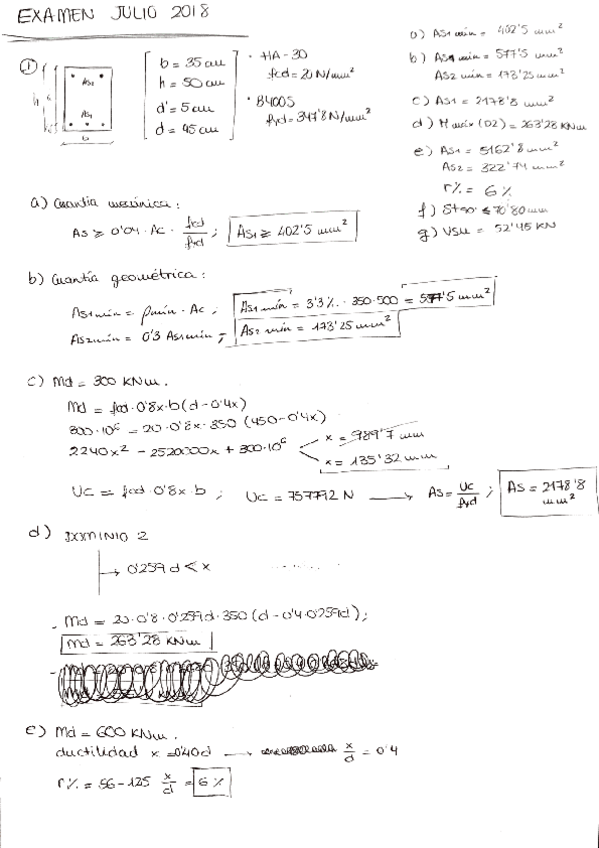 EXAMEN JULIO 2018
① As₂ As₁ h b
b = 35 cm
h = 50 cm
d' = 5 cm
d = 45 cm
· HA-30
fcd = 20 N/mm²
· B400S
fyd = 347'8 N/mm²
a) As₁ min = 402'5 mm²
b) As₁ min = 577'5 mm²
As₂ min = 173'25 mm²
c) As₁ = 2178'8 mm²
d) M máx (D2) = 263'28 KNm
e) As₁ = 5162'8 mm²
As₂ = 322'74 mm²
r% = 6%
f) St ≤ 70'80 mm
g) Vsu = 52'45 KN
a) Cuantía mecánica:
As ≥ 0'04 · Ac · fcd/fyd ; As₁ ≥ 402'5 mm²
b) Cuantía geométrica:
As₁ min = ρmin · Ac ; As₁ min = 3'3‰ · 350·500 = 577'5 mm²
As₂ min = 0'3 As₁ min ; As₂ min = 173'25 mm²
c) Md = 300 KNm.
Md = fcd · 0'8x · b (d - 0'4x)
300·10⁶ = 20·0'8x·350 (450-0'4x)
2240x² - 2520000x + 300·10⁶
x = 989'7 mm
x = 135'32 mm
Uc = fcd · 0'8x · b ; Uc = 757792 N → As = Uc/fyd ; As = 2178'8 mm²
d) DOMINIO 2
→ 0'259 d < x ........
- Md = 20·0'8·0'259d·350 (d - 0'4·0'259d) ;
Md = 263'28 KNm
e) Md = 600 KNm.
ductilidad x = 0'40d → x/d = 0'4
r% = 56 - 125 x/d = 6%